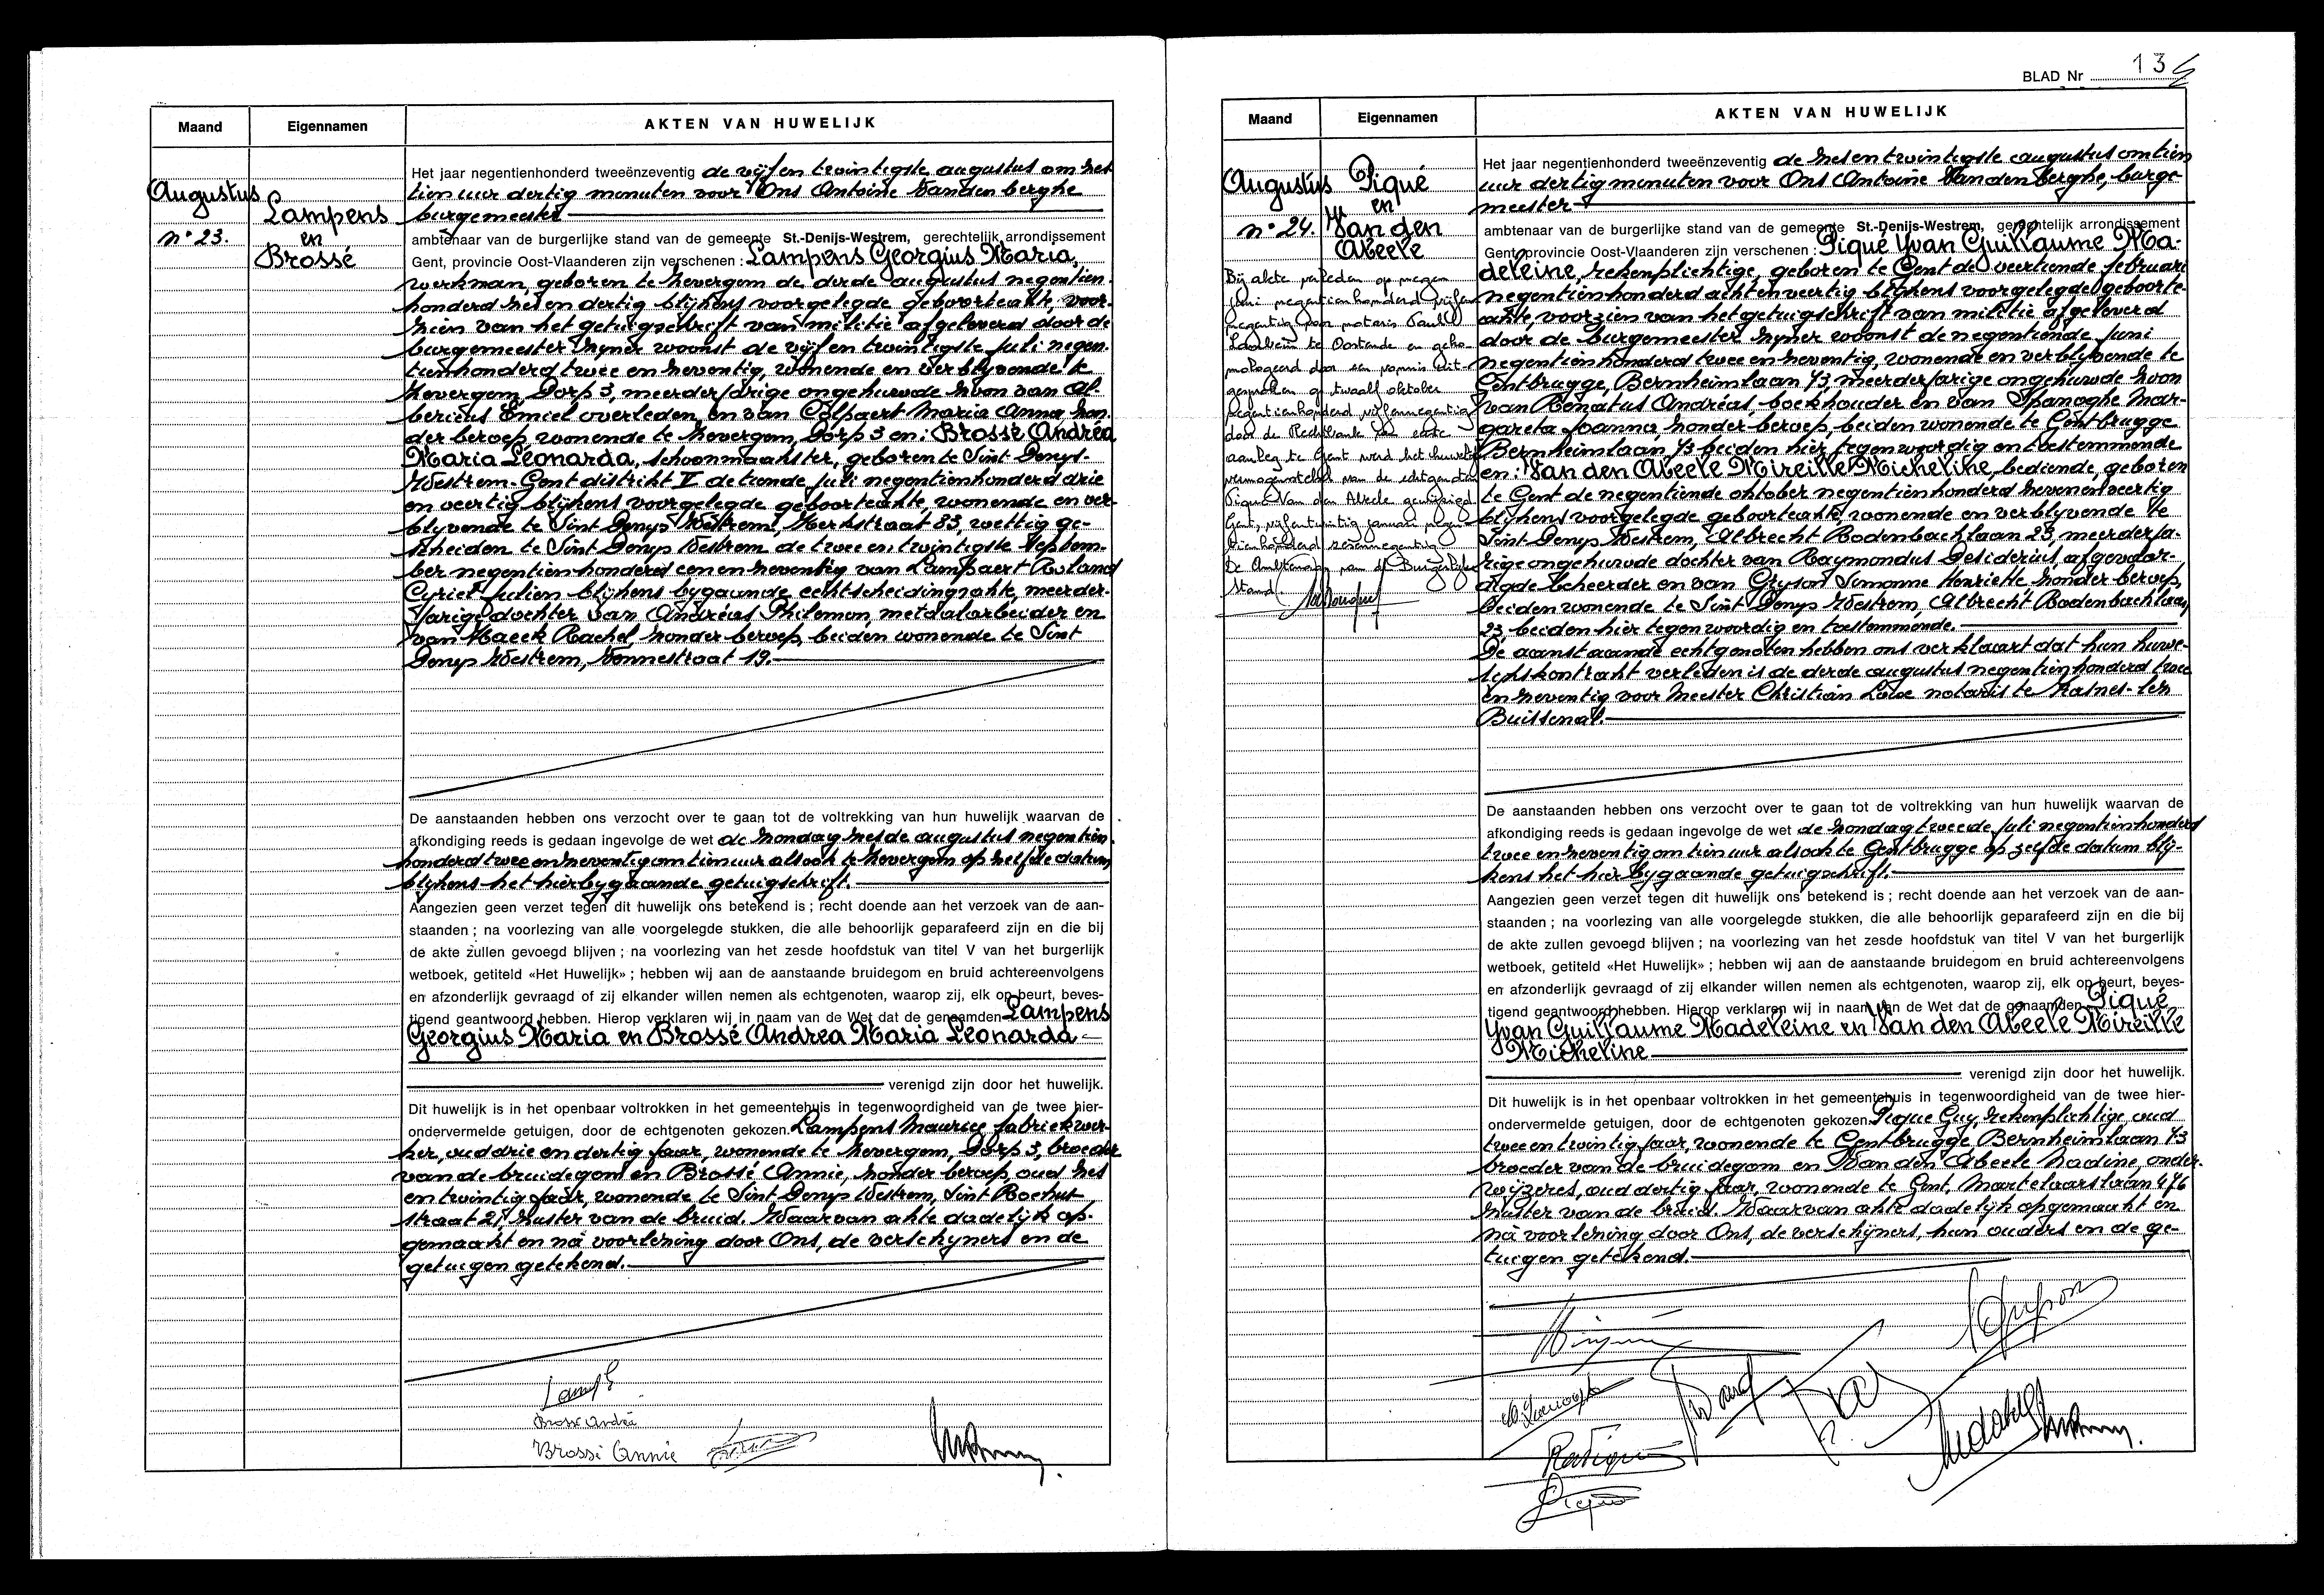 Maand
Eigennamen
AKTEN VAN HUWELIJK
Augustus
n° 23.
Lampens
en
Brossé
Het jaar negentienhonderd tweeënzeventig de vijf en twintigste augustus om zes
tien uur dertig minuten voor Ons Antoine Vanden berghe
burgemeester
ambtenaar van de burgerlijke stand van de gemeente St.-Denijs-Westrem, gerechtelijk arrondissement
Gent, provincie Oost-Vlaanderen zijn verschenen : Lampens Georgius Maria,
werkman, geboren te Zevergem de derde augustus negentien-
honderd zes en dertig blijkens voorgelegde geboorteakte, voor-
zien van het getuigschrift van militie afgeleverd door de
burgemeester zijner woonst de vijf en twintigste juli negen-
tienhonderd twee en zeventig, wonende en verblijvende te
Zevergem, Dorp 3, meerderjarige ongehuwde zoon van Al-
bericus Emiel overleden, en van Colpaert Maria Anna zon-
der beroep, wonende te Zevergem, Dorp 3 en: Brossé Andrea
Maria Leonarda, schoonmaakster, geboren te Sint Denys-
Westrem-Gent distrikt V de tiende juli negentienhonderd drie
en veertig blijkens voorgelegde geboorteakte, wonende en ver-
blijvende te Sint Denys Westrem, Kerkstraat 83, wettig ge-
scheiden te Sint Denys Westrem de twee en twintigste septem-
ber negentienhonderd een en zeventig van Lampaert Roland
Cyriel Julien blijkens bygaande echtscheidingsakte, meerder-
jarige dochter van Andréas Philemon, metaalarbeider en
van Haeck Rachel, zonder beroep, beiden wonende te Sint
Denys Westrem, Vonnestraat 19.
De aanstaanden hebben ons verzocht over te gaan tot de voltrekking van hun huwelijk waarvan de
afkondiging reeds is gedaan ingevolge de wet de zondag zesde augustus negentien-
honderd twee en zeventig om tien uur alsook te Zevergem op zelfde datum
blijkens het hierbygaande getuigschrift.
Aangezien geen verzet tegen dit huwelijk ons betekend is ; recht doende aan het verzoek van de aan-
staanden ; na voorlezing van alle voorgelegde stukken, die alle behoorlijk geparafeerd zijn en die bij
de akte zullen gevoegd blijven ; na voorlezing van het zesde hoofdstuk van titel V van het burgerlijk
wetboek, getiteld «Het Huwelijk» ; hebben wij aan de aanstaande bruidegom en bruid achtereenvolgens
en afzonderlijk gevraagd of zij elkander willen nemen als echtgenoten, waarop zij, elk op beurt, beves-
tigend geantwoord hebben. Hierop verklaren wij in naam van de Wet dat de genaamden Lampens
Georgius Maria en Brossé Andrea Maria Leonarda
verenigd zijn door het huwelijk.
Dit huwelijk is in het openbaar voltrokken in het gemeentehuis in tegenwoordigheid van de twee hier-
ondervermelde getuigen, door de echtgenoten gekozen. Lampens Maurice fabriekwer-
ker, oud drie en dertig jaar, wonende te Zevergem, Dorp 3, broeder
van de bruidegom en Brossé Annie, zonder beroep, oud zes
en twintig jaar, wonende te Sint Denys Westrem, Sint Rochus
straat 21, zuster van de bruid. Waarvan akte dadelijk op-
gemaakt en na voorlezing door Ons, de verschijners en de
getuigen getekend.
Brossé Andréa
Brossé Annie
BLAD Nr 134
Maand
Eigennamen
AKTEN VAN HUWELIJK
Augustus
n° 24.
Piqué
en
Van den
Abeele
Bij akte verleden op negen
juni negentienhonderd vijfen
negentig voor notaris Paul
te Oostende en geho-
mologeerd door een vonnis uit-
gesproken op twaalf oktober
negentienhonderd vijfennegentig
door de Rechtbank van eerste
aanleg te Gent werd het huwelijks
vermogenstelsel van de echtgenoten
Piqué-Van den Abeele gewijzigd.
Gent, vijfentwintig januari negen-
tienhonderd zesennegentig.
De Ambtenaar van de Burgerlijke
Stand
Het jaar negentienhonderd tweeënzeventig de zes en twintigste augustus om tien
uur dertig minuten voor Ons Antoine Van den Berghe, burge-
meester
ambtenaar van de burgerlijke stand van de gemeente St.-Denijs-Westrem, gerechtelijk arrondissement
Gent provincie Oost-Vlaanderen zijn verschenen : Piqué Yvan Guillaume Ma-
deleine, rekenplichtige, geboren te Gent de veertiende februari
negentienhonderd acht en veertig blijkens voorgelegde geboorte-
akte, voorzien van het getuigschrift van militie afgeleverd
door de burgemeester zijner woonst de negentiende juni
negentienhonderd twee en zeventig, wonende en verblijvende te
Gentbrugge, Bernheimlaan 73, meerderjarige ongehuwde zoon
van Renatus Andréas, boekhouder en van Spanoghe Mar-
gareta Joanna, zonder beroep, beiden wonende te Gentbrugge
Bernheimlaan 73 beiden hier tegenwoordig en toestemmende
en: Van den Abeele Mireille Micheline, bediende, geboren
te Gent de negentiende oktober negentienhonderd zeven en veertig
blijkens voorgelegde geboorteakte, wonende en verblijvende te
Sint Denys Westrem, Albrecht Rodenbachlaan 23, meerderja-
rige ongehuwde dochter van Raymondus Desiderius, afgevaar-
digde beheerder en van Gryson Simonne Henriette zonder beroep,
beiden wonende te Sint Denys Westrem, Albrecht Rodenbachlaan
23 beiden hier tegenwoordig en toestemmende.
De aanstaande echtgenoten hebben ons verklaart dat hun huwe-
lijkskontrakt verleden is de derde augustus negentienhonderd twee
en zeventig voor Meester Christian notaris te Frasnes-lez
Buissenal.
De aanstaanden hebben ons verzocht over te gaan tot de voltrekking van hun huwelijk waarvan de
afkondiging reeds is gedaan ingevolge de wet de zondag tweede juli negentienhonderd
twee en zeventig om tien uur alsook te Gentbrugge op zelfde datum blij-
kens het hier bygaande getuigschrift.
Aangezien geen verzet tegen dit huwelijk ons betekend is ; recht doende aan het verzoek van de aan-
staanden ; na voorlezing van alle voorgelegde stukken, die alle behoorlijk geparafeerd zijn en die bij
de akte zullen gevoegd blijven ; na voorlezing van het zesde hoofdstuk van titel V van het burgerlijk
wetboek, getiteld «Het Huwelijk» ; hebben wij aan de aanstaande bruidegom en bruid achtereenvolgens
en afzonderlijk gevraagd of zij elkander willen nemen als echtgenoten, waarop zij, elk op beurt, beves-
tigend geantwoord hebben. Hierop verklaren wij in naam van de Wet dat de genaamden Piqué
Yvan Guillaume Madeleine en Van den Abeele Mireille
Micheline
verenigd zijn door het huwelijk.
Dit huwelijk is in het openbaar voltrokken in het gemeentehuis in tegenwoordigheid van de twee hier-
ondervermelde getuigen, door de echtgenoten gekozen. Pique Guy, rekenplichtige, oud
twee en twintig jaar, wonende te Gentbrugge Bernheimlaan 73
broeder van de bruidegom en Van den Abeele Nadine, onder-
wijzeres, oud dertig jaar, wonende te Gent, Martelaarslaan 476
zuster van de bruid. Waarvan akte dadelijk opgemaakt en
na voorlezing door Ons, de verschijners, hun ouders en de ge-
tuigen getekend.